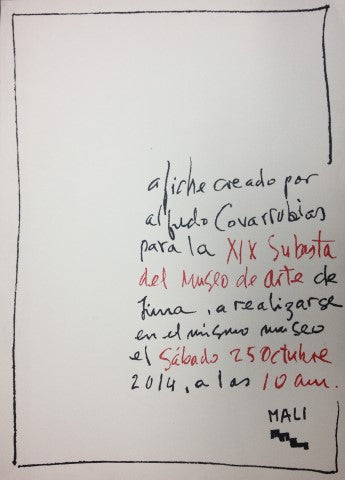 afiche creado por
alfredo Covarrubias
para la XIX Subasta
del Museo de arte de
Lima, a realizarse
en el mismo museo
el Sábado 25 Octubre
2014, a las 10 am.
MALI